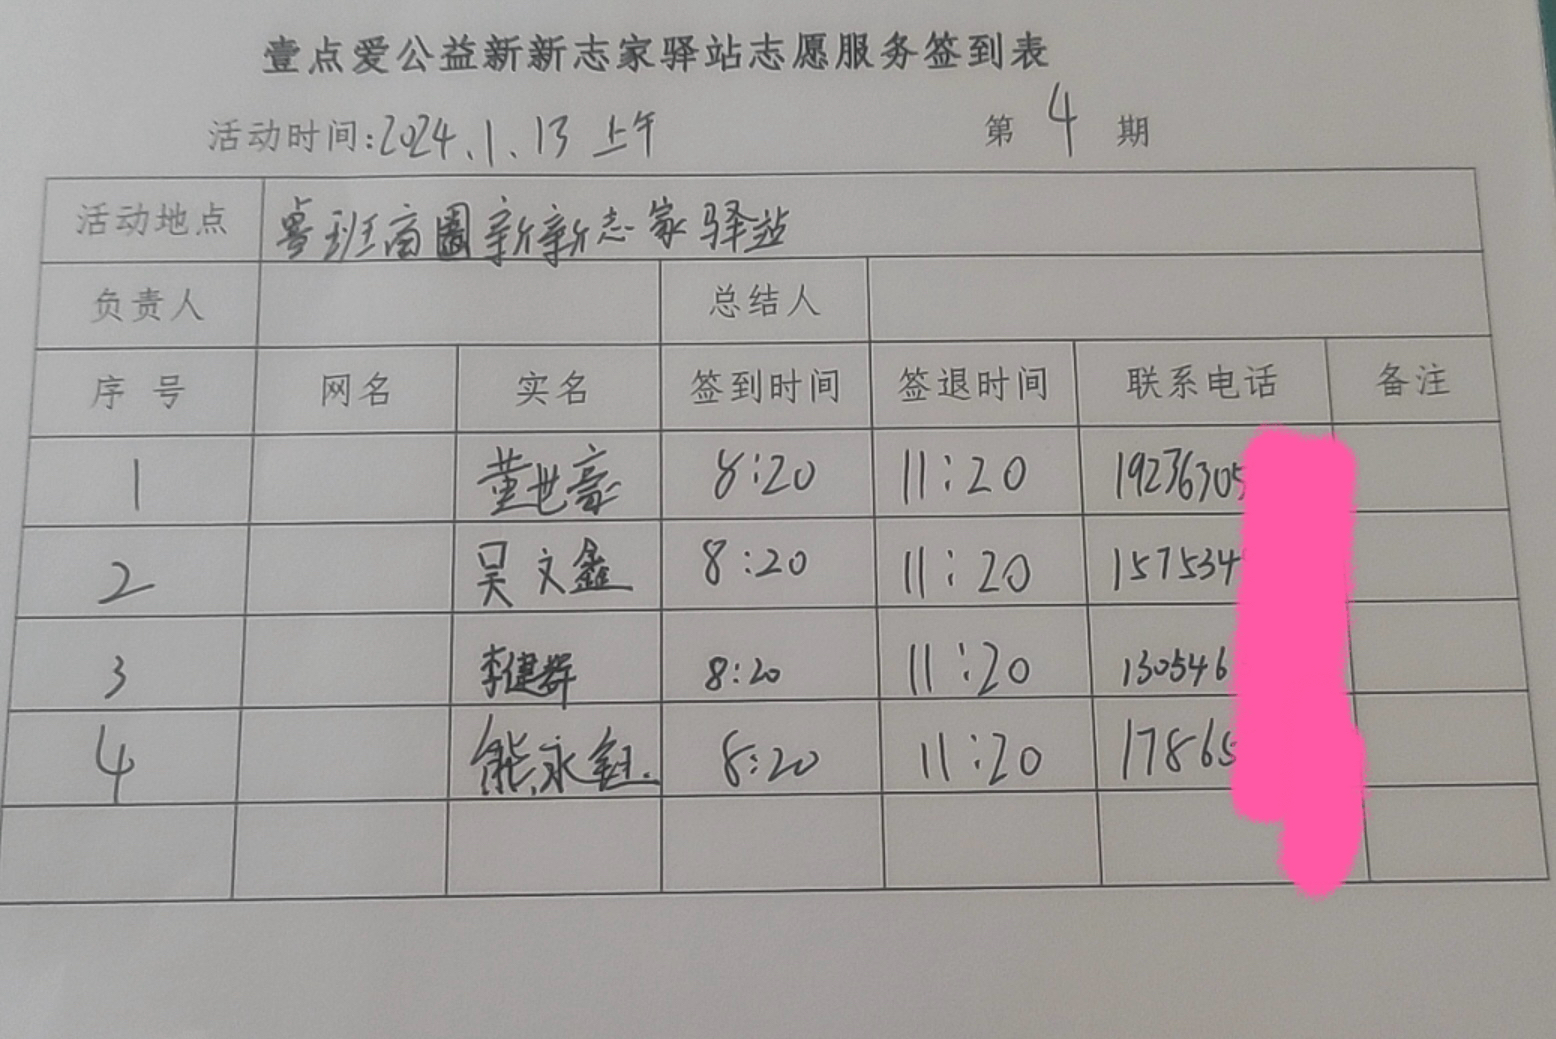 壹点爱公益新新志家驿站志愿服务签到表
活动时间:2024.1.13 上午 第 4 期
活动地点 鲁班商圈新新志家驿站
负责人 总结人
序号 网名 实名 签到时间 签退时间 联系电话 备注
1 董世豪 8:20 11:20 19276305
2 吴文鑫 8:20 11:20 1575534
3 李健辉 8:20 11:20 130546
4 熊永钰 8:20 11:20 17865